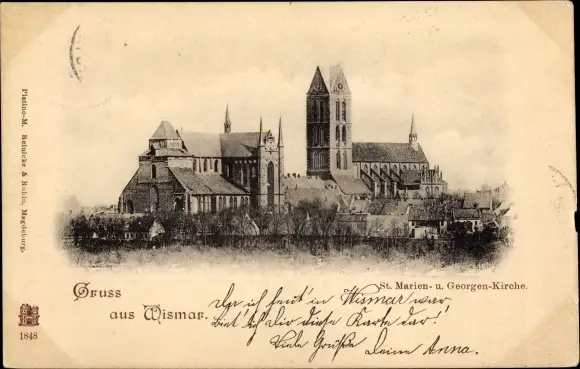 Platino-M. Reinicke & Rubin, Magdeburg.
St. Marien- u. Georgen-Kirche.
Gruss
aus Wismar.
Da ich heut' in Wismar war
Biet' ich Dir diese Karte dar!
Viele Grüße Deine Anna.
1848